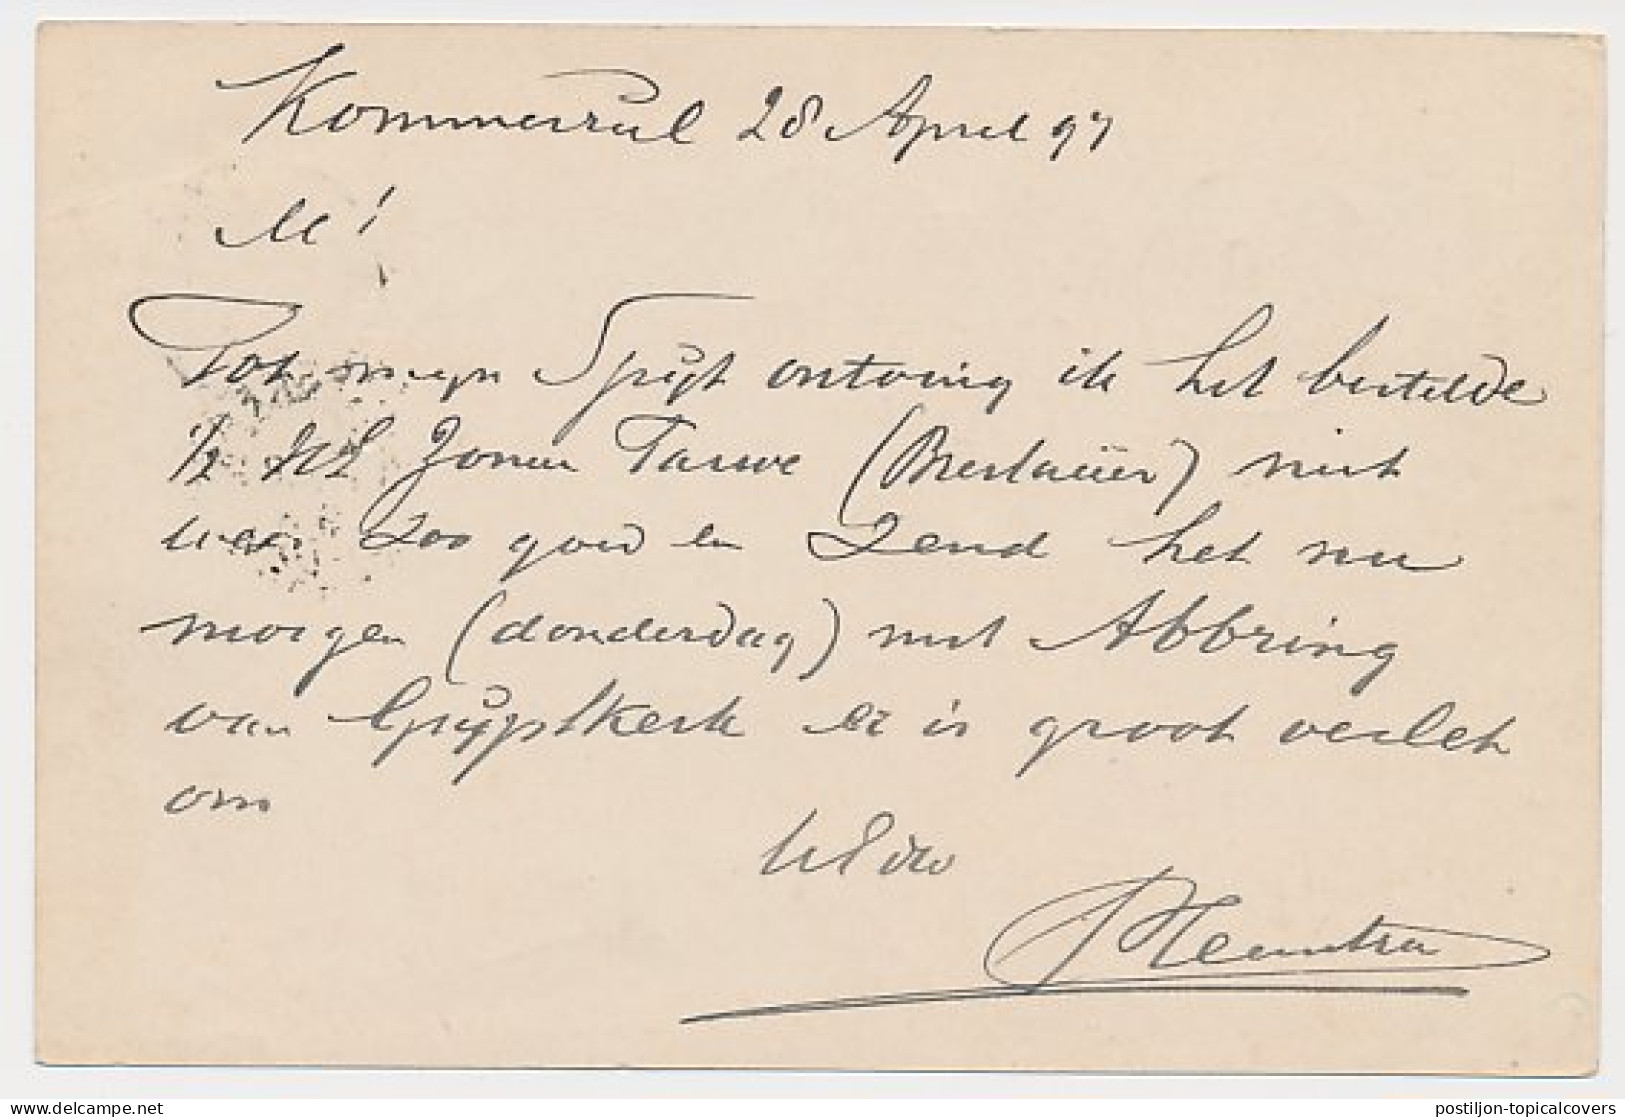 Kommerzul 28 April 97
M!
Tot mijn Spijt ontving ik het bestelde
1/2 HL Zomer Tarwe (Breslauër) niet
wees zoo goed en Zend het nu
morgen (donderdag) met Abbring
van Grijpskerk er is groot verlet
om
UEdw
Heemstra
postiljon-topicalcovers
delcampe.net